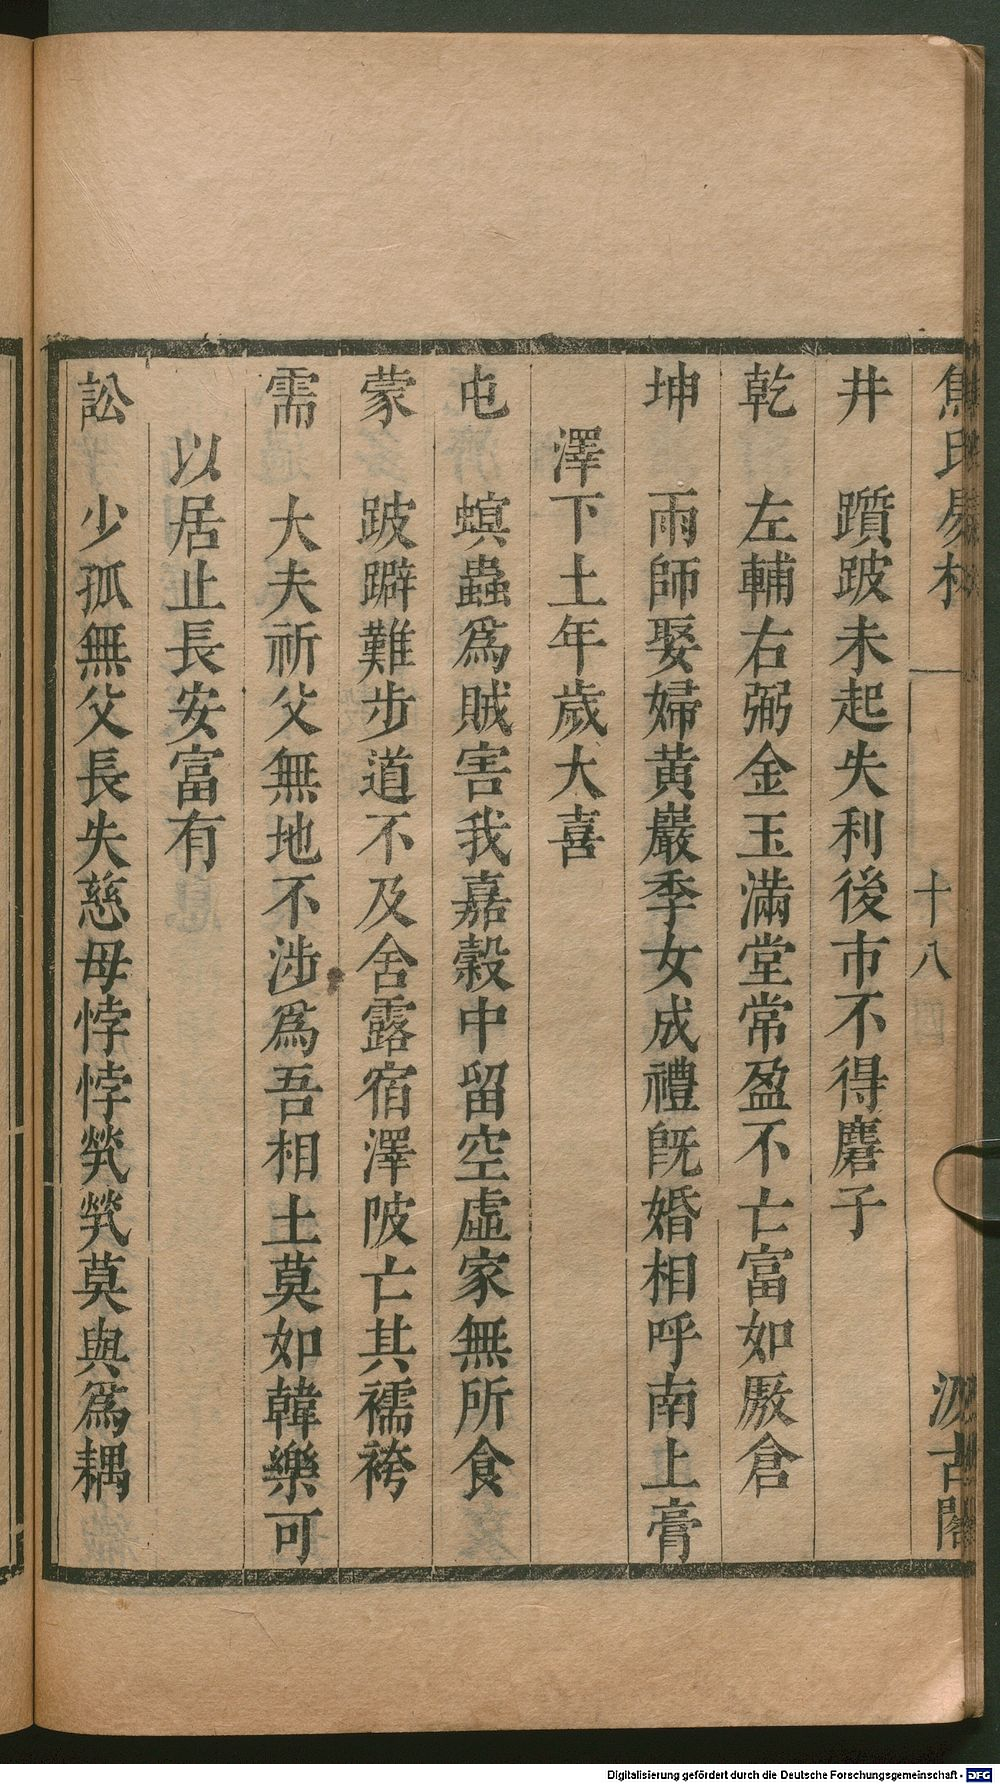 焦氏易林 一 十八 汲古閣
井 躓跛未起失利後市不得麏子
乾 左輔右弼金玉滿堂常盈不亡富如厫倉
坤 雨師娶婦黄巖季女成禮旣婚相呼南上膏
澤下土年歲大喜
屯 螟蟲爲賊害我嘉榖中留空虛家無所食
蒙 跛躃難步道不及舍露宿澤陂亡其襦袴
需 大夫祈父無地不涉爲吾相土莫如韓樂可
以居止長安富有
訟 少孤無父長失慈母悖悖煢煢莫與爲耦
Digitalisierung gefördert durch die Deutsche Forschungsgemeinschaft - DFG